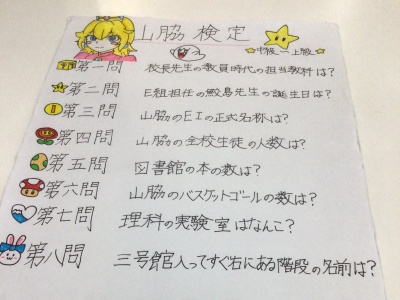 山脇検定
中級〜上級
第一問 校長先生の教員時代の担当教科は?
第二問 E組担任の鮫島先生の誕生日は?
第三問 山脇のEIの正式名称は?
第四問 山脇の全校生徒の人数は?
第五問 図書館の本の数は?
第六問 山脇のバスケットゴールの数は?
第七問 理科の実験室はなんこ?
第八問 三号館入ってすぐ右にある階段の名前は?